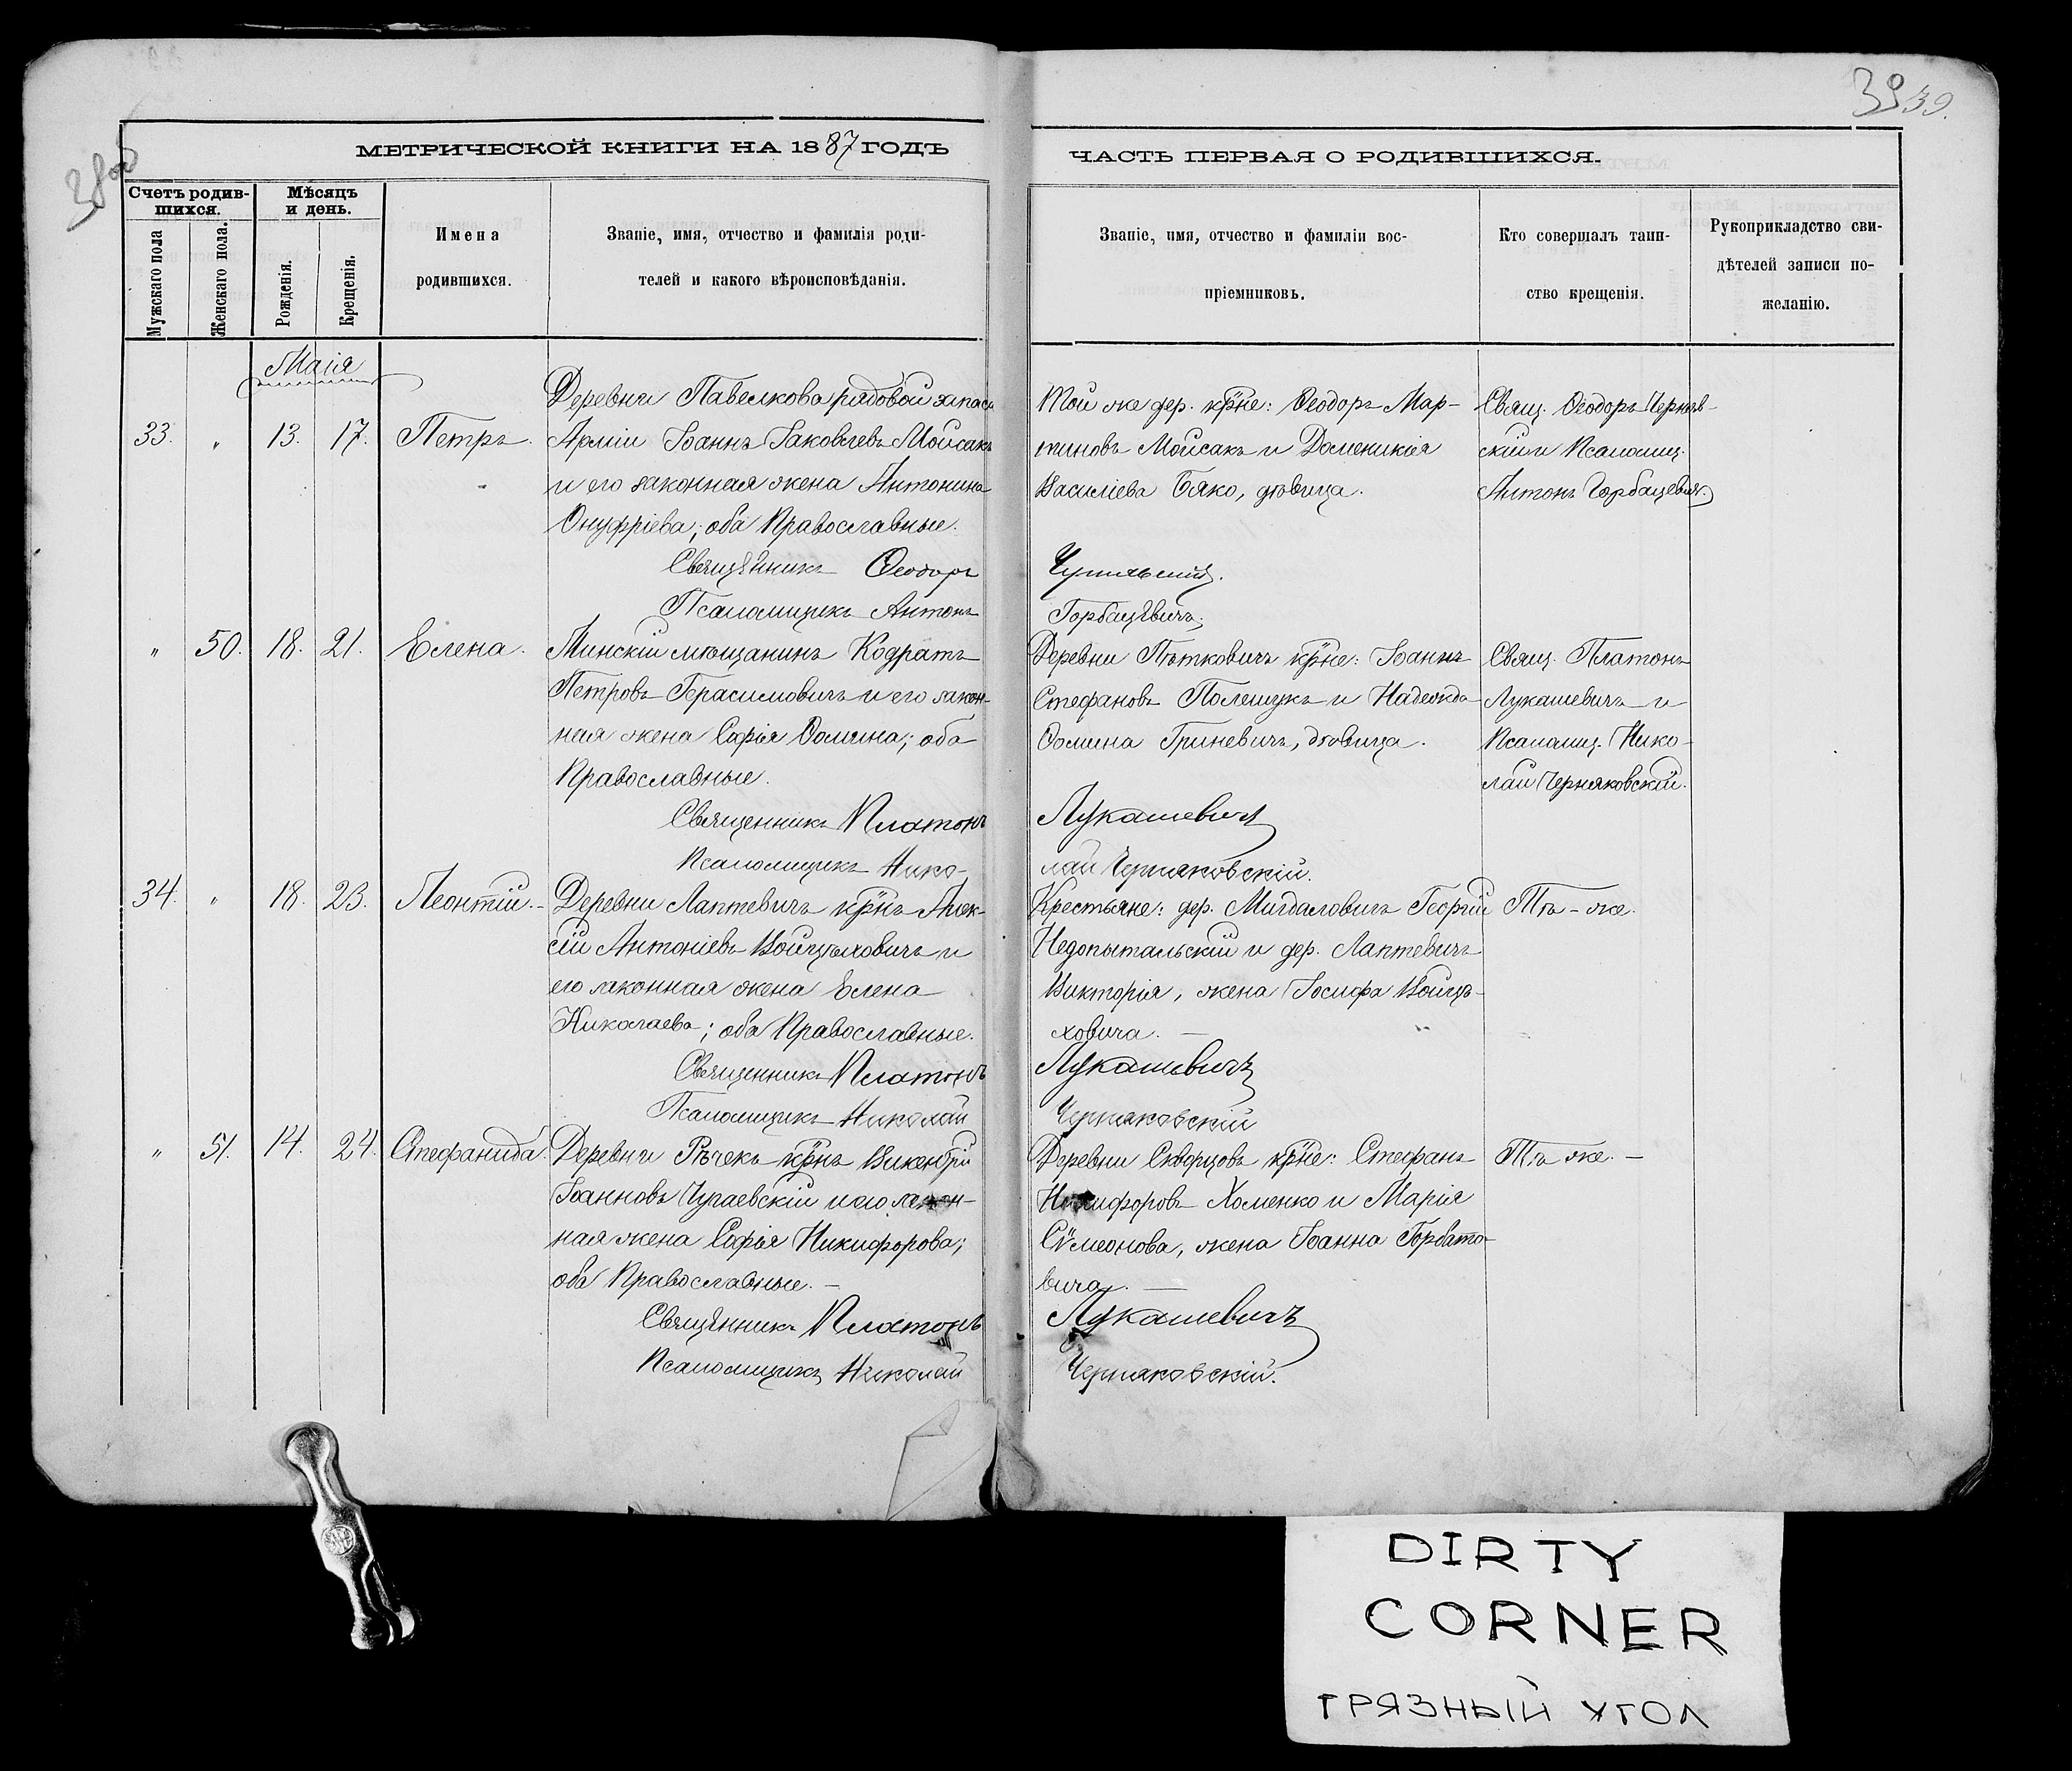 38об
39 39.
МЕТРИЧЕСКОЙ КНИГИ НА 1887 ГОДЪ
ЧАСТЬ ПЕРВАЯ О РОДИВШИХСЯ.
Счетъ родив-
шихся.
Мужскаго пола
Женскаго пола.
Мѣсяцъ
и день.
Рожденія.
Крещенія.
Имена
родившихся.
Званіе, имя, отчество и фамилія роди-
телей и какого вѣроисповѣданія.
Званіе, имя, отчество и фамиліи вос-
пріемниковъ.
Кто совершалъ таин-
ство крещенія.
Рукоприкладство сви-
дѣтелей записи по-
желанію.
Маія
33. " 13. 17. Петръ.
Деревни Павелкова рядовой запаса
Арміи Іоаннъ Іаковлевъ Мойсакъ
и его законная жена Антонина
Онуфріева; оба Православные.
Священникъ Ѳеодоръ
Псаломщикъ Антонъ
Той же дер. крне: Ѳеодоръ Мар-
тиновъ Мойсакъ и Доменикія
Василіева Бяко, дѣвица.
Горбацевичъ.
Свящ. Ѳеодоръ Черняв-
скій и Псаломщ.
Антонъ Горбацевичъ.
" 50. 18. 21. Елена.
Минскій мѣщанинъ Кодратъ
Петровъ Герасимовичъ и его закон-
ная жена Софія Ѳомина; оба
Православные.
Священникъ Платонъ
Псаломщикъ Нико-
Деревни Пѣтковичъ крне: Іоаннъ
Стефановъ Полещукъ и Надежда
Ѳомина Гриневичъ, дѣвица.
Лукашевичъ
лай Черняковскій.
Свящ. Платонъ
Лукашевичъ и
Псаломщ. Нико-
лай Черняковскій.
34. " 18. 23. Леонтій.
Деревни Лаптевичъ крнъ Алек-
сій Антоніевъ Войцѣховичъ и
его законная жена Елена
Николаева; оба Православные.
Священникъ Платонъ
Псаломщикъ Николай
Крестьяне: дер. Мигдаловичъ Георгій
Недопытальскій и дер. Лаптевичъ
Викторія, жена Іосифа Войцѣ-
ховича. —
Лукашевичъ
Черняковскій
Тѣ-же.
" 51. 14. 24. Стефанида.
Деревни Рѣчекъ крнъ Викентій
Іоанновъ Чугаевскій и его закон-
ная жена Софія Никифорова;
оба Православные. —
Священникъ Платонъ
Псаломщикъ Николай
Деревни Скворцовъ крне: Стефанъ
Никифоровъ Хоменко и Марія
Сѵмеонова, жена Іоанна Горбато-
вича. —
Лукашевичъ
Черняковскій.
Тѣ же. —
DIRTY
CORNER
ГРЯЗНЫЙ УГОЛ